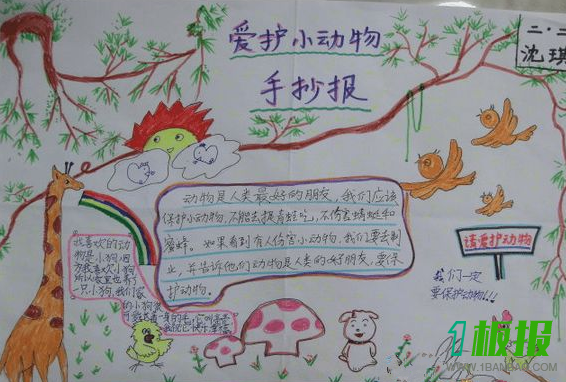 爱护小动物
手抄报
二.二
沈琪
动物是人类最好的朋友,我们应该
保护小动物,不能去捉青蛙吃,不伤害蜻蜓和
蜜蜂。如果看到有人伤害小动物,我们要去制
止,并告诉他们动物是人类的好朋友,要保
护动物。
我喜欢的动
物是小狗,因
为我喜欢小狗
所以家里也养了
一只小狗,我们家
的小狗
请爱护动物
我们一定
要保护动物!!!
1板报
WWW.1BANBAO.COM